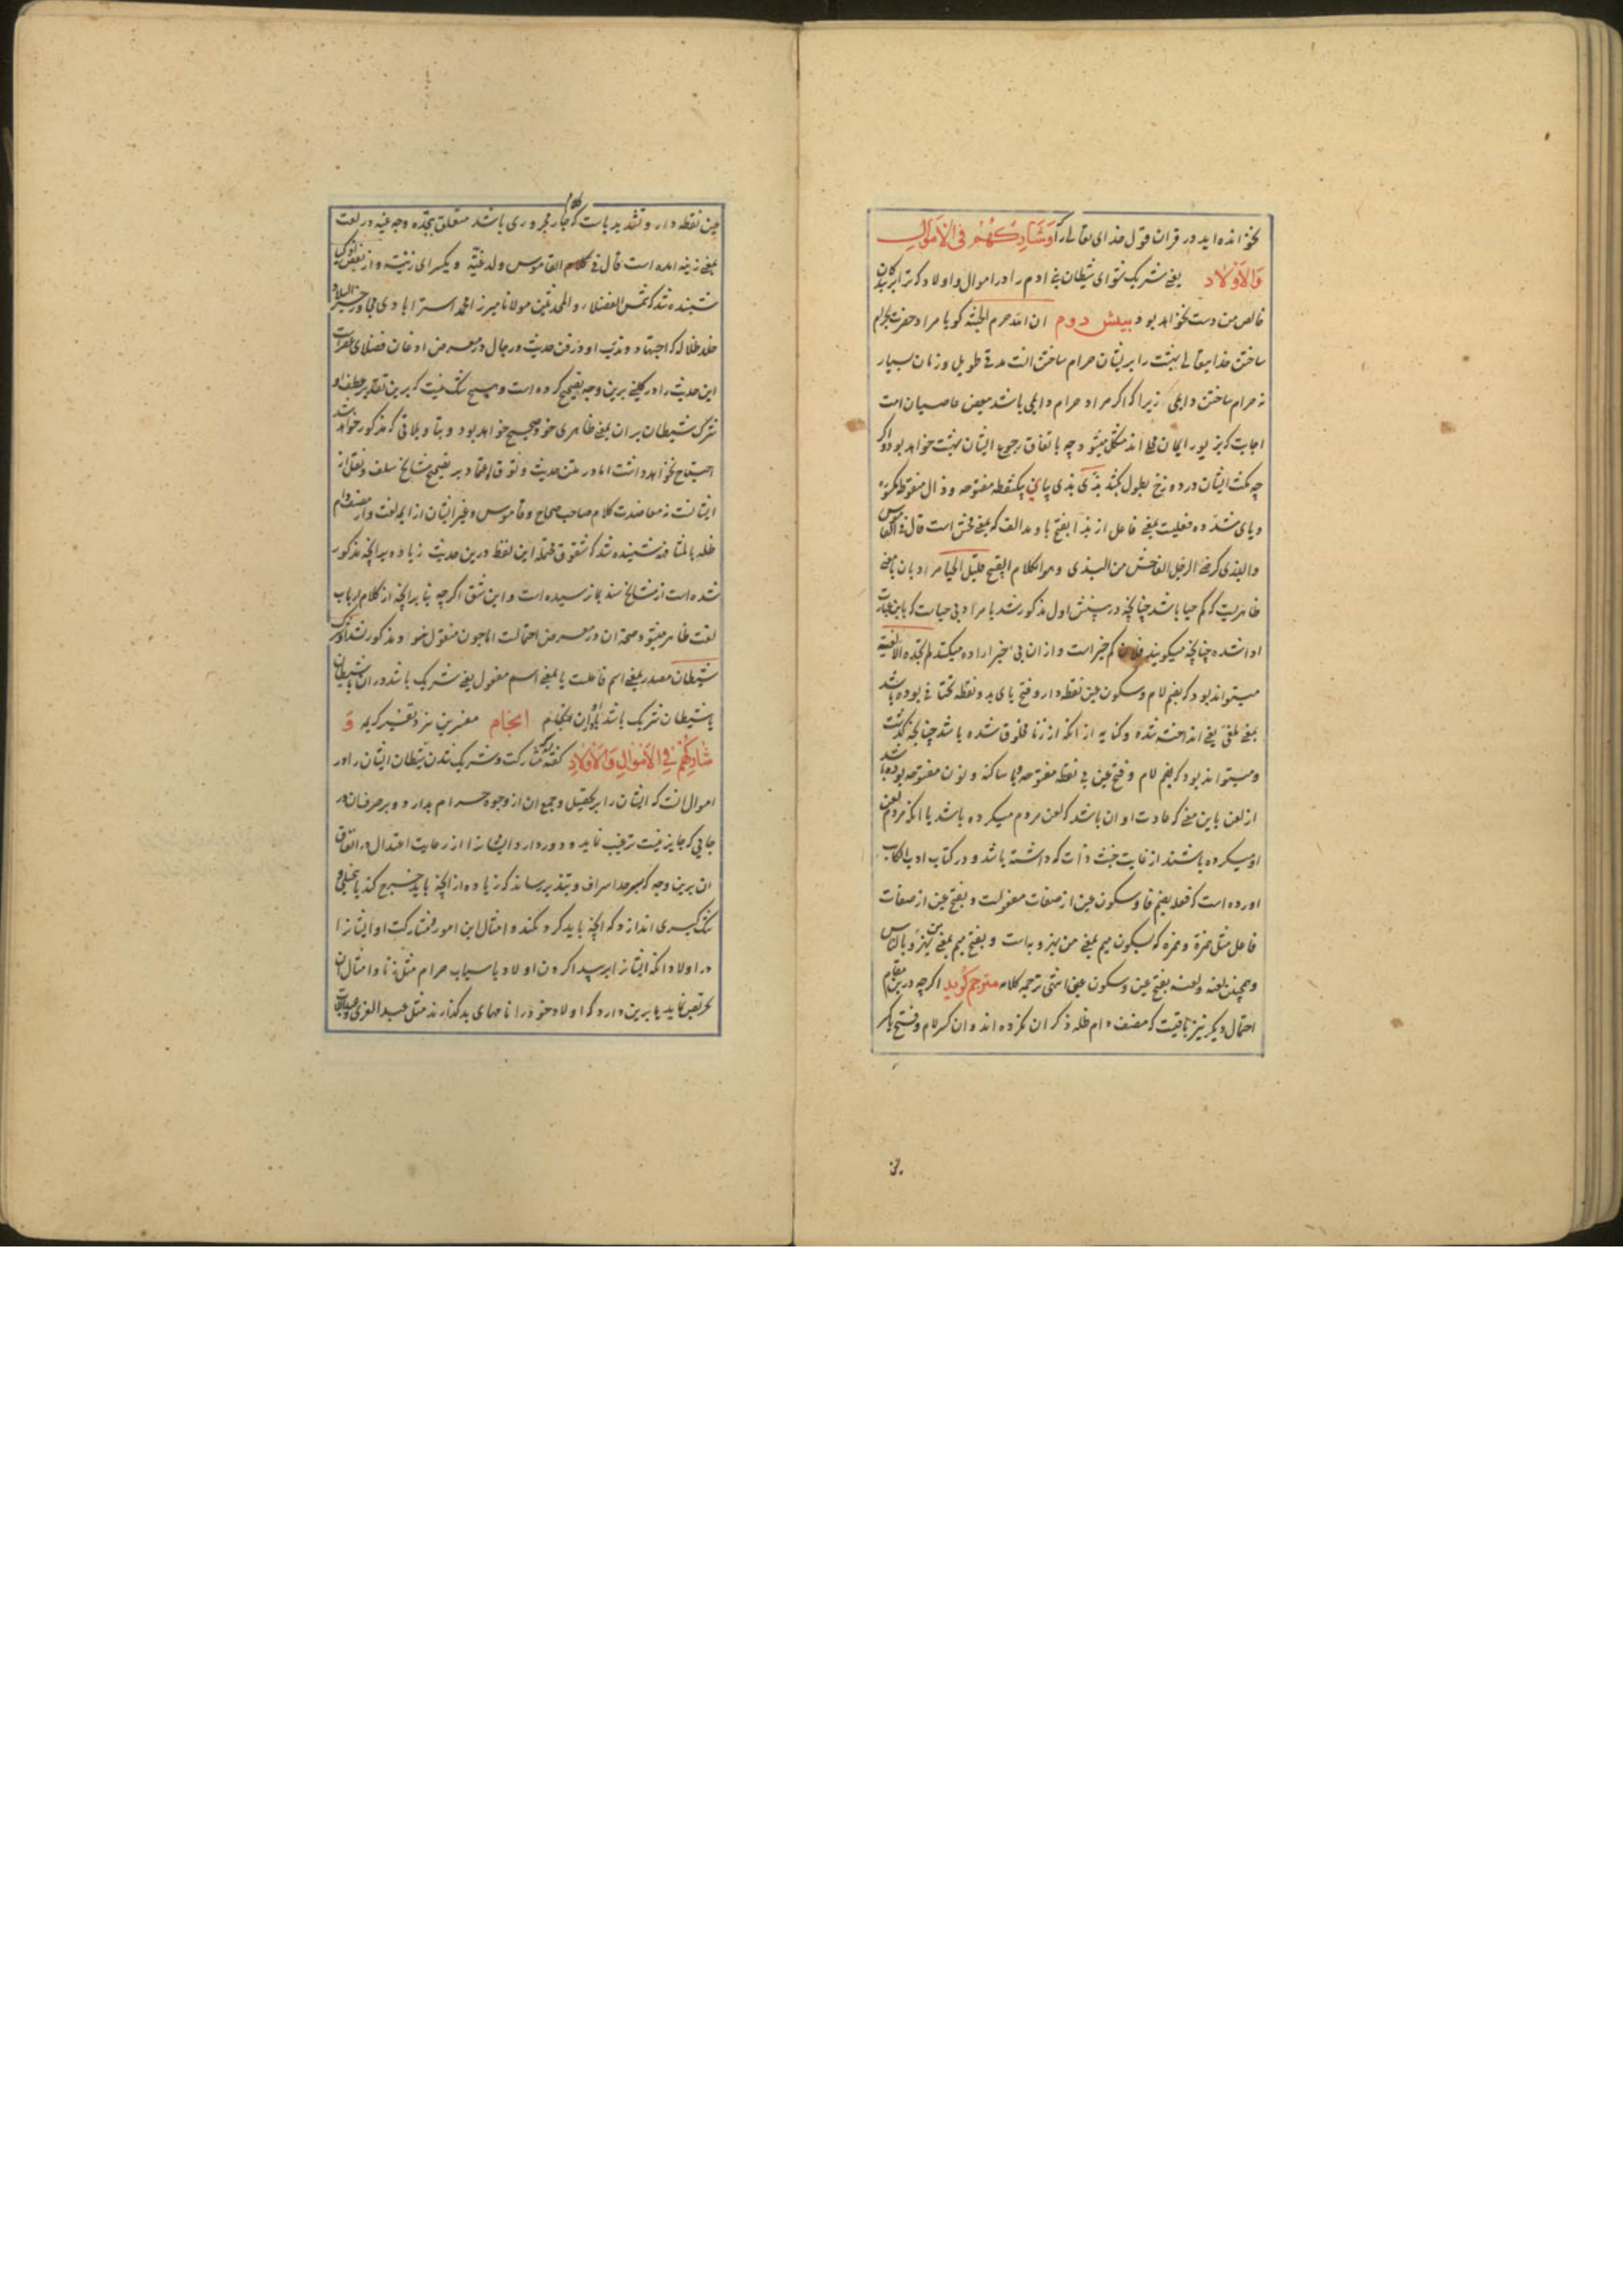 نخوانده اید در قران قول خدای تعالی را وَشَارِكْهُمْ فِی الْاَمْوَالِ
وَالْاَوْلَادِ یعنی شریک شو ای شیطان بنی ادم را در اموال و اولاد که ترا بر بندکان
خالص من دست نخواهد بود بینش دوم ان الله حرم الجنة کویا مراد حضرت بحرام
ساختن خدایتعالی بهشت را بر ایشان حرام ساختن انست مدتی طویل و زمان بسیار
نه حرام ساختن دایمی زیرا که اکر مراد حرام دایمی باشد بعض عاصیان امت
اجابت که بزیور ایمان محلی اند مشکل میشود چه باتفاق رجوع ایشان بهشت خواهد بود و اکر
چه مکث ایشان در دوزخ بطول کشد بذّی بذی ببای یکنقطه مفتوحه و ذال منقوطه مکسوره
و یای مشدده فعیلست بمعنی فاعل از بذا بفتح با و مد الف که بمعنی فحش است قال فی القاموس
والبذی کرضی الرجل الفاحش من البذی و هو الکلام القبیح قلیل الحیا مراد بان یا معنی
ظاهریست که کم حیا باشد چنانچه در بینش اول مذکور شد یا مراد بی حیاست که باین عبارت
ادا شده چنانچه میکویند فلان کم خیر است و از ان بی خیر اراده میکنند لم تجده الا لغیة
میتواند بود که بضم لام و سکون غین نقطه دار و فتح یای بدو نقطه تحتانی بوده باشد
بمعنی ملغی یعنی انداخته شده و کنایه از انکه از زنا مخلوق شده باشد چنانچه کذشت
و میتواند بود که بضم لام و فتح عین بی نقطه مفتوحه و یا ساکنه و نون مفتوحه بوده باشد
از لعن باین معنی که عادت او ان باشد که لعن مردم میکرده باشد یا انکه مردم لعن
او میکرده باشند از غایت خبث ذات که داشته باشد و در کتاب ادب الکاتب
اورده است که فعله بضم فا و سکون عین از صفات مفعولست و بفتح عین از صفات
فاعل مثل همزة و همزه که بسکون میم بمعنی من یهزو به است و بفتح میم بمعنی من یهزو بالناس
و همچنین لعنه و لعنه بفتح عین و سکون عین انتهی ترجمه کلامه مترجم کوید اکرچه درین مقام
احتمال دیکر نیز باقیست که مصنف دام ظله ذکر ان نکرده اند و ان کسر لام و فتح یا کسر
غین نقطه دار و تشدید یاست که جار مجروری باشد متعلق بتجده و چه غیه در لغت
بمعنی زنیه امده است قال فی القاموس ولد غیة و یکسر ای زنیة و از بعض
شنیده شد که شمس الفضلاء والمحدثین مولانا میرزا محمد استرابادی مجاور خیر البلاد
خلد ظلاله که اجتهاد و تدرب او در فن حدیث و رجال در معرض اذعان فضلای
این حدیث را در کلینی برین وجه تصحیح کرده است و هیچ شک نیست که برین تقدیر عطف او
شرک شیطان بر ان بمعنی ظاهری خود صحیح خواهد بود و بتاویلاتی که مذکور خواهد شد
احتیاج نخواهد داشت اما در متن حدیث وثوق و اعتماد بر تصحیح مشایخ سلف و نقل از
ایشانست نه معاضدت کلام صاحب صحاح و قاموس و غیر ایشان از ایمه لغت و از مصنف دام
ظله بالمشافهه شنیده شد که شقوق محتمله این لفظ درین حدیث زیاده بر انچه مذکور
شده است از مشایخ سند بما نرسیده است و این شق اکرچه بنا بر انچه از کلام ارباب
لغت ظاهر میشود صحت ان در معرض احتمالست اما چون منقول نبود مذکور نشد او شرک
شیطان مصدر بمعنی اسم فاعلست یا بمعنی اسم مفعول یعنی شریک باشد در ان با شیطان
یا شیطان شریک باشد با او در ان هنکام انجام مفسرین نزد تفسیر کریمه وَ
شَارِكْهُمْ فِی الْاَمْوَالِ وَالْاَوْلَادِ کفته اند که مشارکت و شریک شدن شیطان ایشان را در
اموال انست که ایشان را بر تحصیل و جمع ان از وجوه حرام بدارد و بر صرف ان در
جایی که جایز نیست ترغیب نماید و دور دارد ایشان را از رعایت اعتدال در انفاق
ان برین وجه که بسرحد اسراف و تبذیر رساند که زیاده از انچه باید خرج کند یا بخیلی و
تنک کیری اندازد که انچه باید کرد نکند و امثال این امور و مشارکت او ایشان را
در اولاد انکه ایشان را بر پیدا کردن اولاد باسباب حرام مثل زنا و امثال ان
تحریص نماید یا برین دارد که اولاد خود را نامهای بد کذارند مثل عبد العزی و عبد اللات